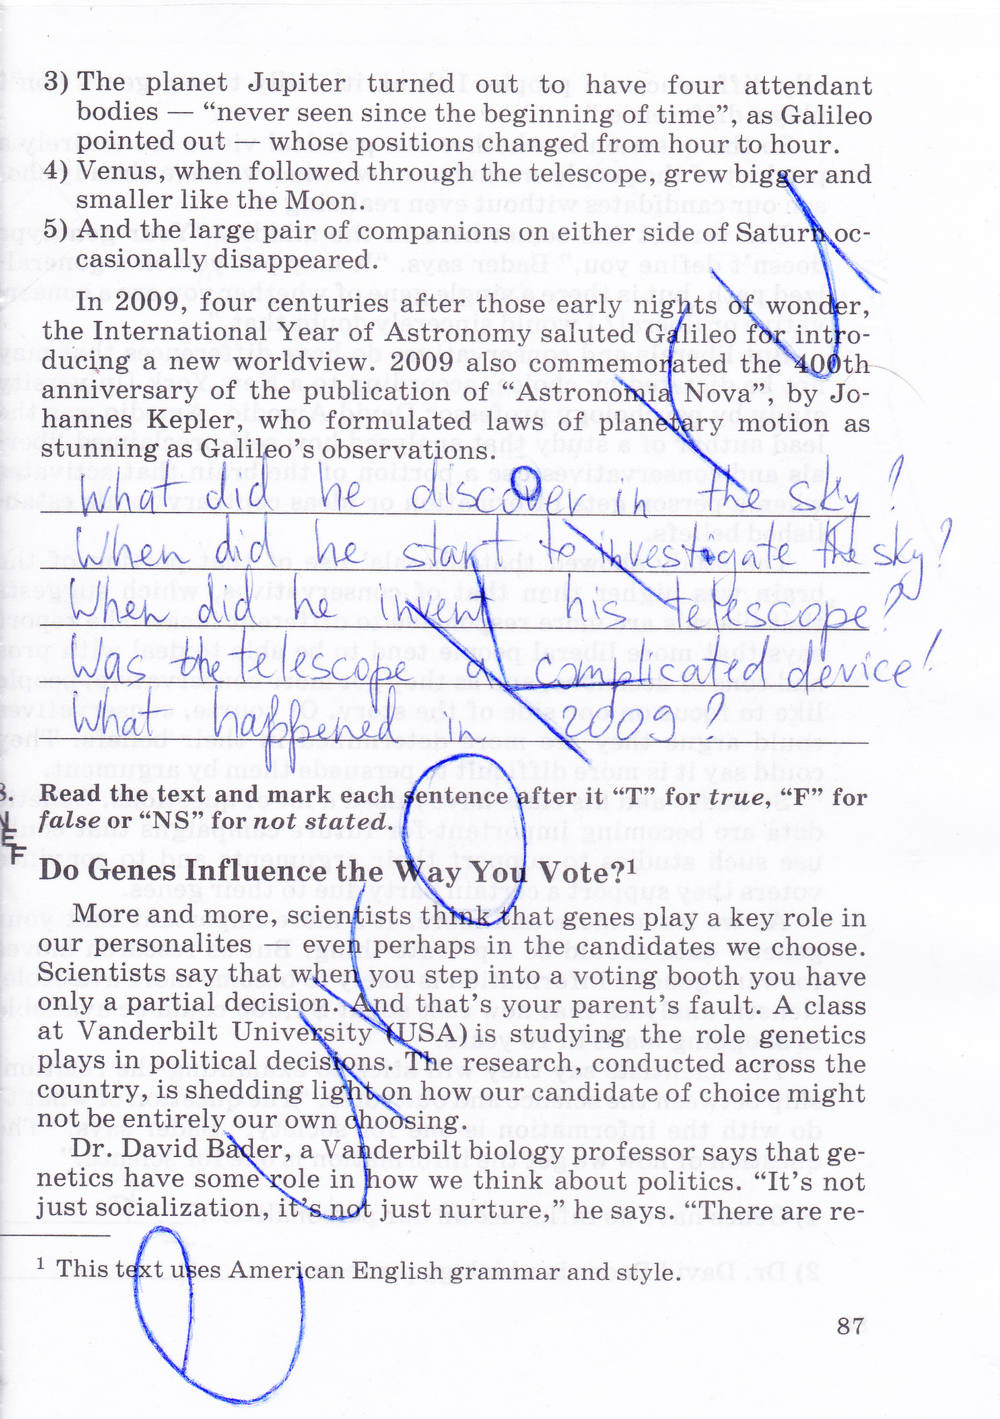 3) The planet Jupiter turned out to have four attendant
bodies — “never seen since the beginning of time”, as Galileo
pointed out — whose positions changed from hour to hour.
4) Venus, when followed through the telescope, grew bigger and
smaller like the Moon.
5) And the large pair of companions on either side of Saturn oc-
casionally disappeared.
In 2009, four centuries after those early nights of wonder,
the International Year of Astronomy saluted Galileo for intro-
ducing a new worldview. 2009 also commemorated the 400th
anniversary of the publication of “Astronomia Nova”, by Jo-
hannes Kepler, who formulated laws of planetary motion as
stunning as Galileo’s observations.
What did he discover in the sky?
When did he start to investigate the sky?
When did he invent his telescope?
Was the telescope a complicated device?
What happened in 2009?
Read the text and mark each sentence after it “T” for true, “F” for
false or “NS” for not stated.
Do Genes Influence the Way You Vote?¹
More and more, scientists think that genes play a key role in
our personalites — even perhaps in the candidates we choose.
Scientists say that when you step into a voting booth you have
only a partial decision. And that’s your parent’s fault. A class
at Vanderbilt University (USA) is studying the role genetics
plays in political decisions. The research, conducted across the
country, is shedding light on how our candidate of choice might
not be entirely our own choosing.
Dr. David Bader, a Vanderbilt biology professor says that ge-
netics have some role in how we think about politics. “It’s not
just socialization, it’s not just nurture,” he says. “There are re-
¹ This text uses American English grammar and style.
87